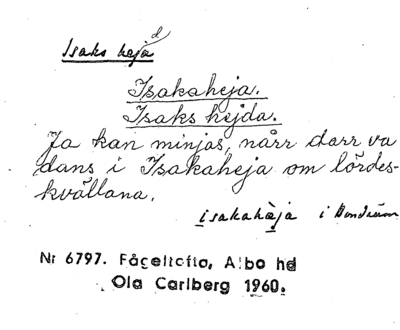 Isaks heja
d
Isakaheja.
Isaks hejda.
Ja kan minjas, nårr darr va
dans i Isakaheja om lördes-
kvällana.
isakahäja i
Nr 6797. Fågeltofta, Albo hd
Ola Carlberg 1960.